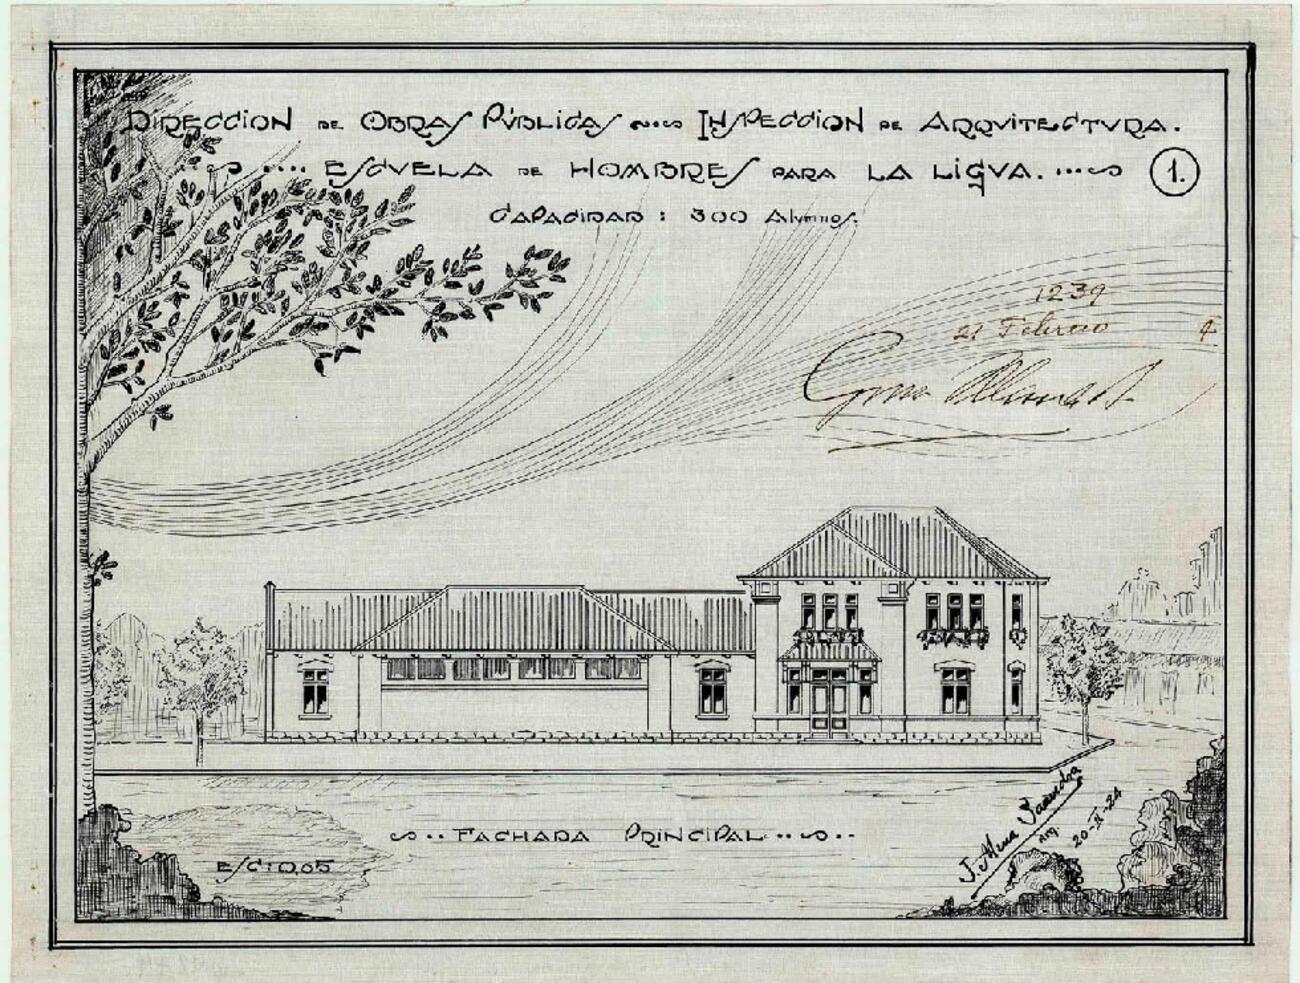 DIRECCION DE OBRAS PÚBLICAS INSPECCION DE ARQVITECTVRA.
ESCVELA DE HOMBRES PARA LA LIGVA.
1.
CAPACIDAD : 300 Alvmnos.
1239
27 Febrero 4
FACHADA PRINCIPAL
ESC: 0,05
Arq.
20-II-24